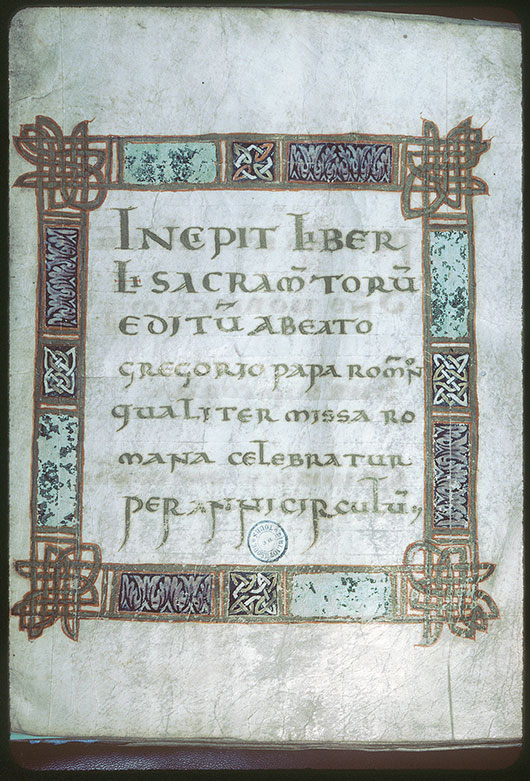 INCIPIT LIBER
LI SACRAM̅TORŪ
EDITŪ A BEATO
GREGORIO PAPA ROM̅N
QUALITER MISSA RO
MANA CELEBRATUR
PER ANNI CIRCULŪ